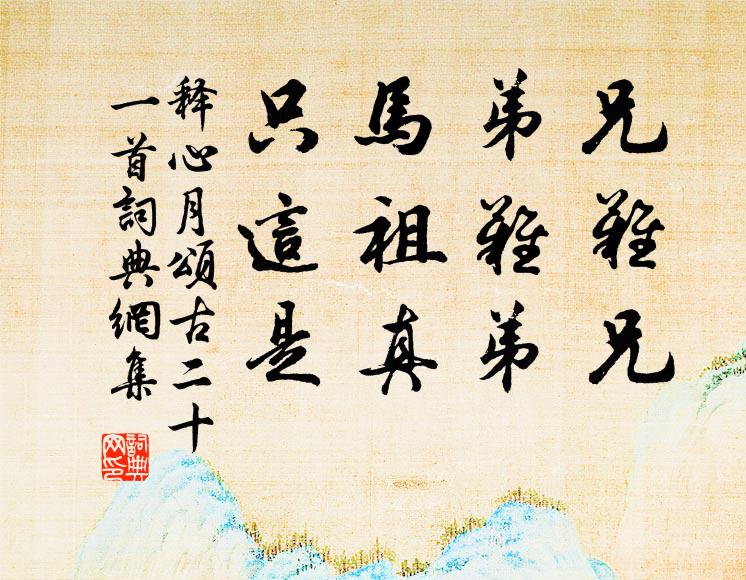 兄難兄
弟難弟
馬祖真
只這是
释心月頌古二十
一首詞典網集
詞典网印